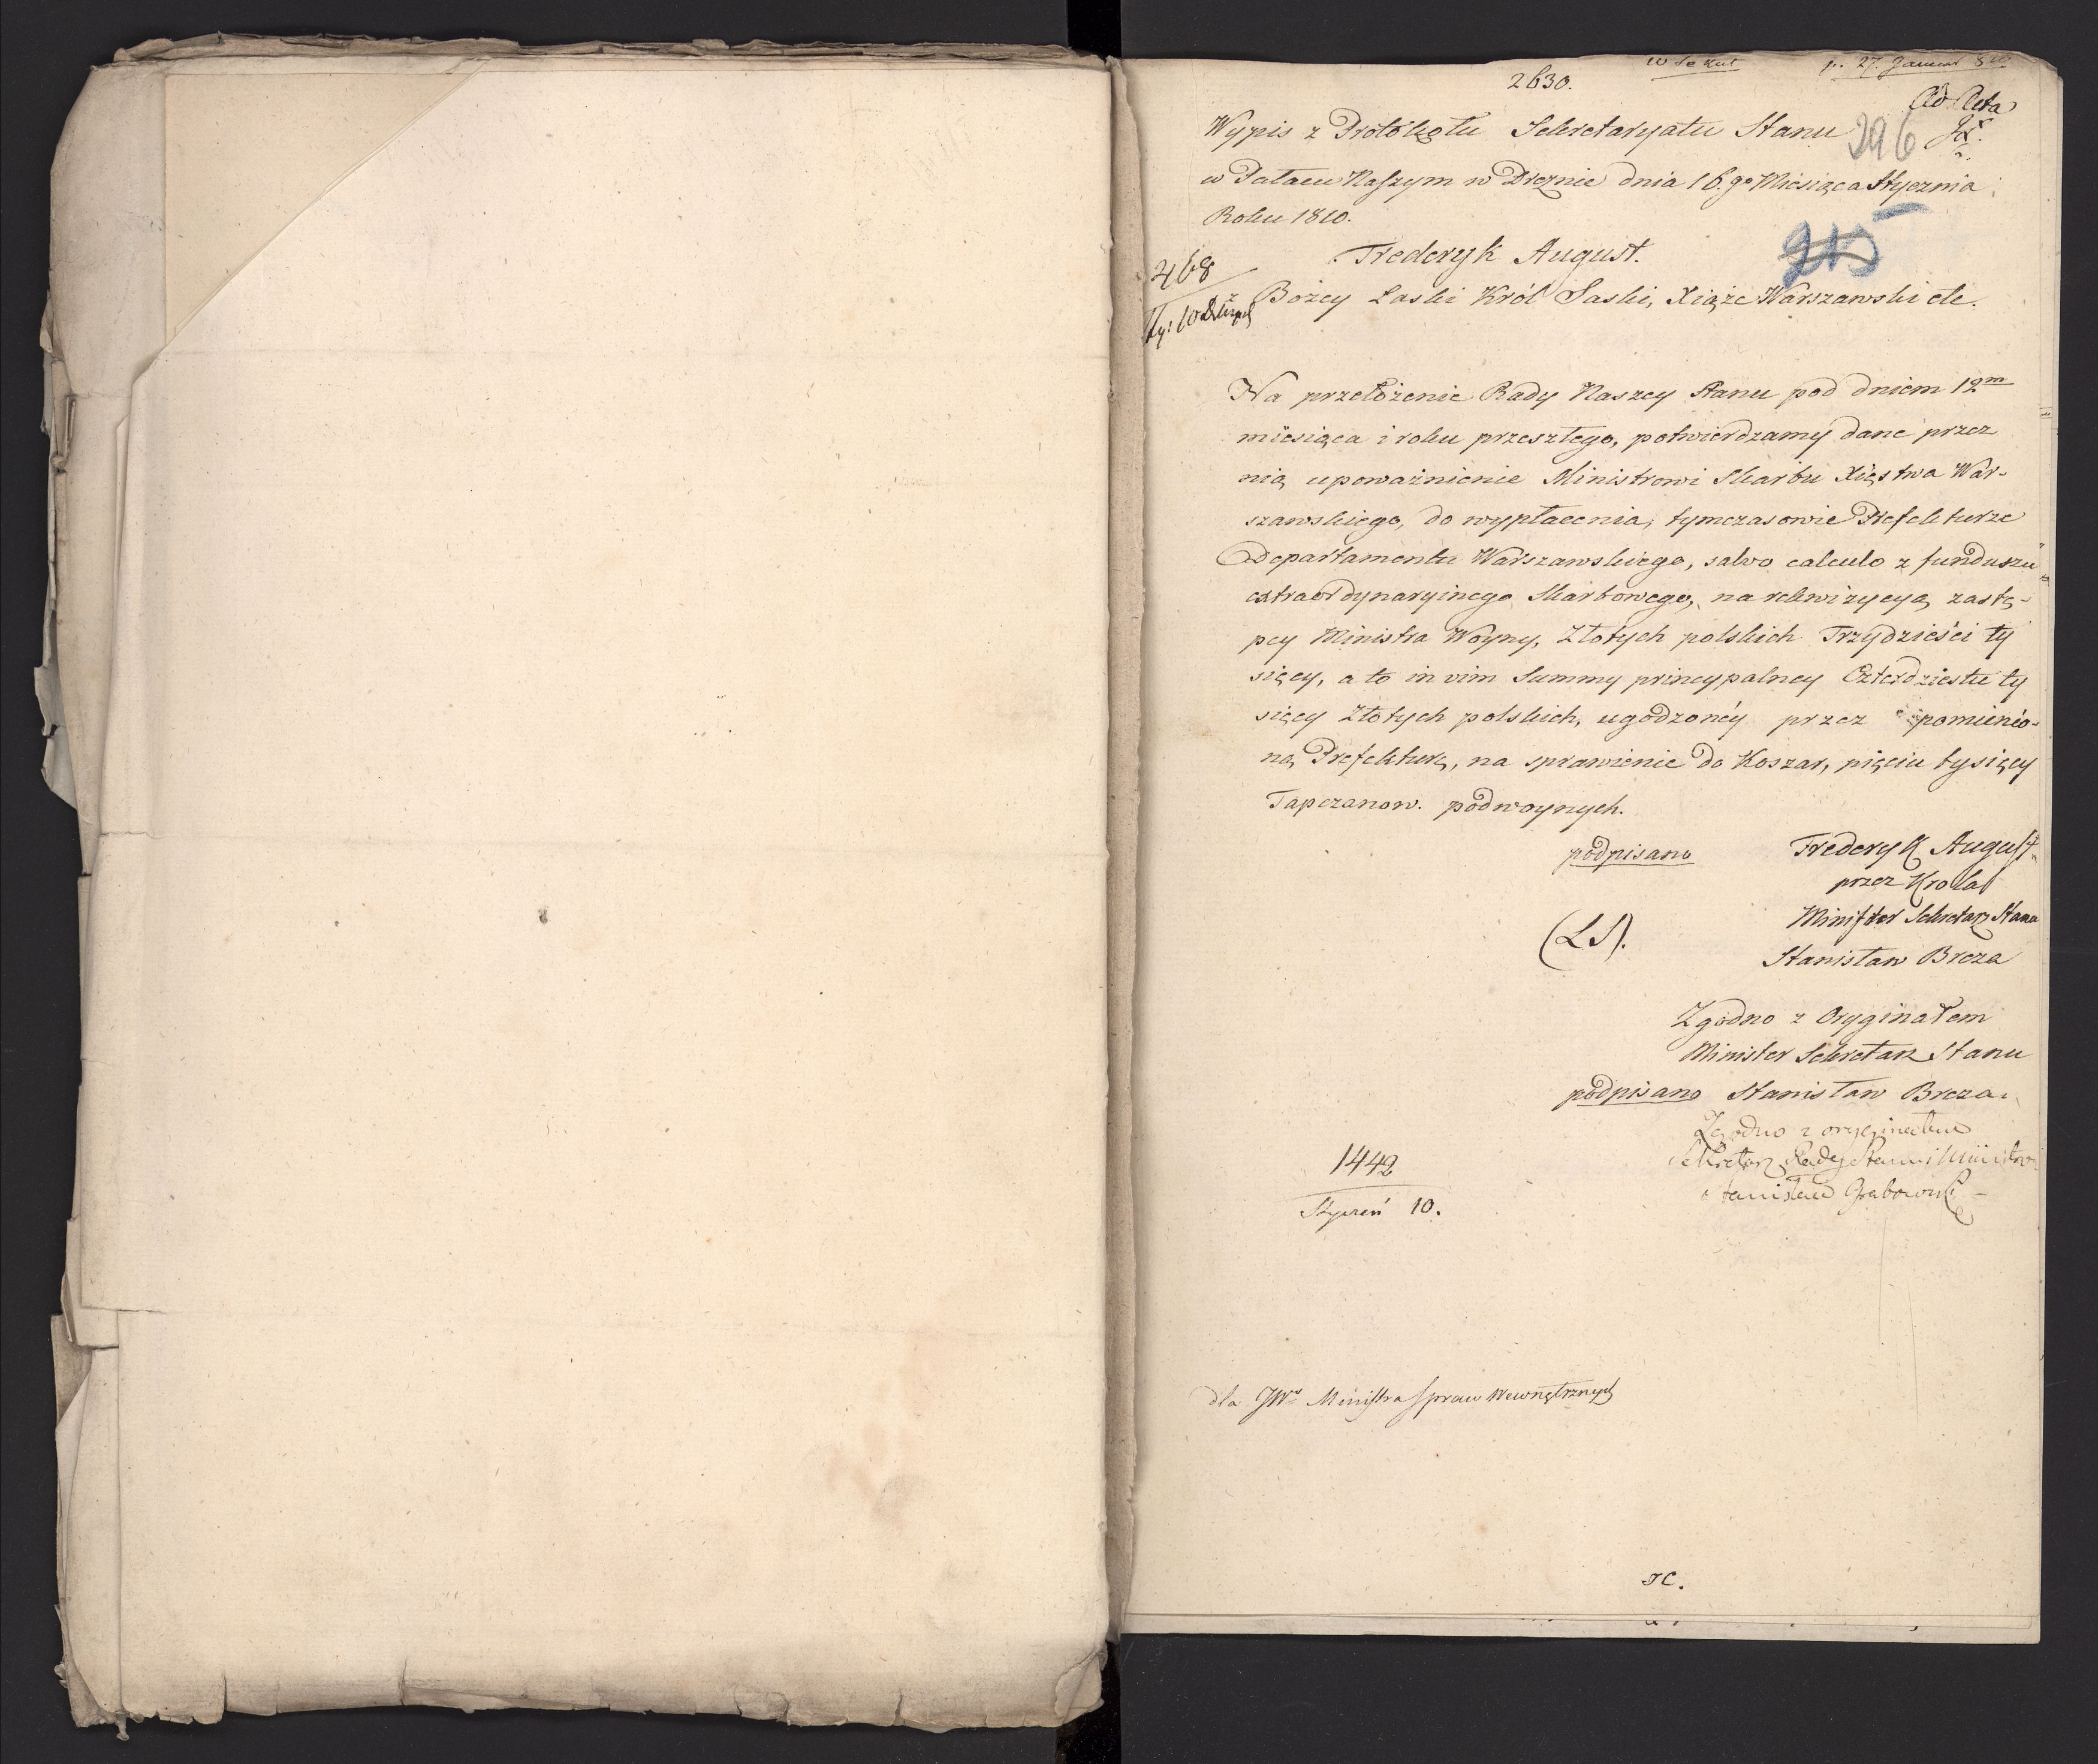 2630.
p. 27. Januar 810
Ad Acta
Wypis z Protókołu Sekretaryatu Stanu
296
w Pałacu Naszym w Dreznie dnia 16.go Miesiąca Stycznia
Roku 1810.
215
Frederyk August.
468
z Bożey Łaski Król Saski, Xiąże Warszawski etc.
Na przełożenie Rady Naszey Stanu pod dniem 12m
miesiąca i roku przeszłego, potwierdzamy dane przez
nią upoważnienie Ministrowi Skarbu Xięstwa War-
szawskiego, do wypłacenia, tymczasowie Prefekturze
Departamentu Warszawskiego, salvo calculo z funduszu
extraordynaryinego Skarbowego, na rekwizycyą zastę-
pcy Ministra Woyny, Złotych polskich Trzydzieści ty
sięcy, a to in vim Summy pryncypalney Czterdziestu ty
sięcy Złotych polskich, ugodzonéy przez pomienio-
ną Prefekturę, na sprawienie do Koszar, pięciu tysięcy
Tapczanow. podwoynych.
podpisano Frederyk August
przez Krola
Minister Sekretarz Stanu
(LS).
Stanisław Breza
Zgodno z Oryginałem
Minister Sekretarz Stanu
podpisano Stanisław Breza.
Zgodno z oryginałem
Sekretarz Rady Stanu i Ministrow
Stanisław Grabowski
1442
Styczeń 10.
dla JWo Ministra Spraw Wewnętrznych
JC.